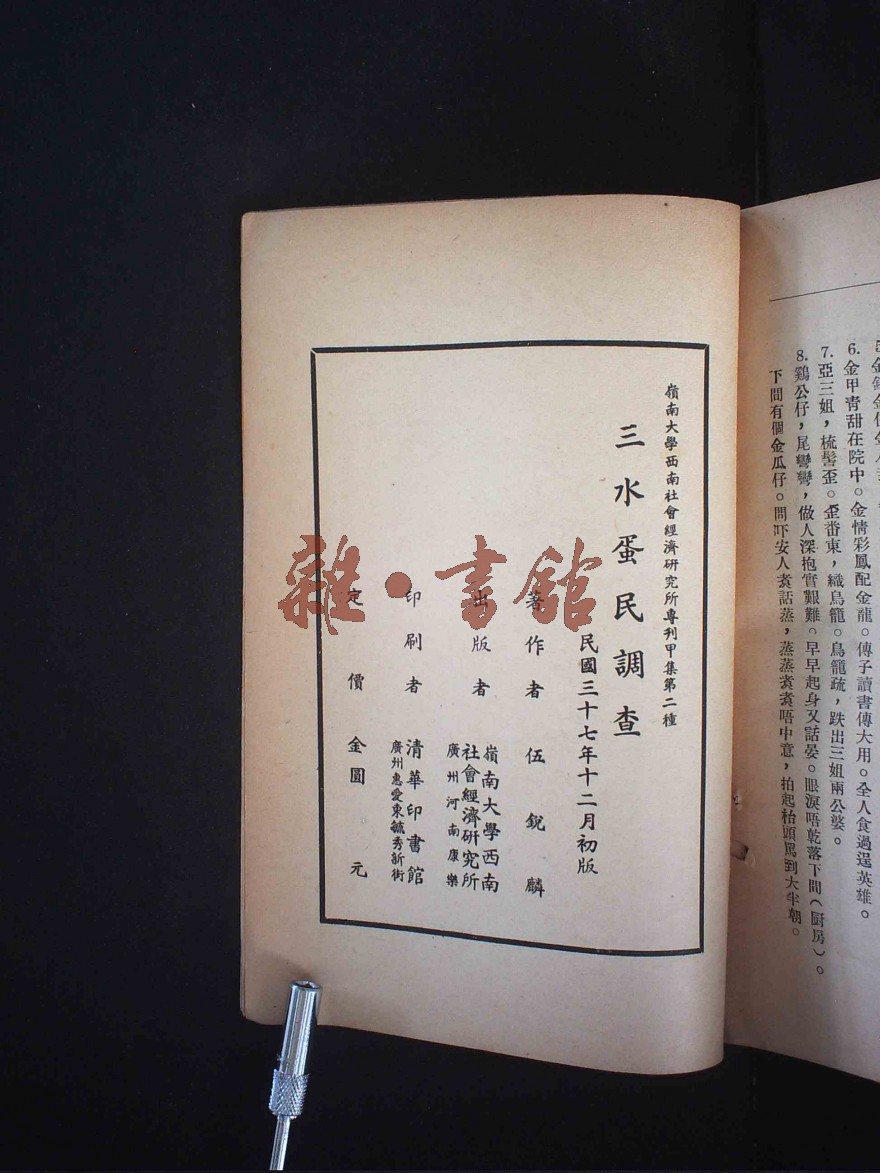 金甲青甜在院中。金情彩鳳配金龍。傳子讀書傳大用。全人食過逞英雄。
7. 亞三姐，梳髻歪。歪番東，織鳥籠。鳥籠疏，跌出三姐兩公婆。
8. 鷄公仔，尾彎彎，做人深抱實艱難。早早起身又話晏。眼淚唔乾落下間（厨房）。
下間有個金瓜仔。問吓安人煑話蒸，蒸蒸煑煑唔中意，拍起枱頭罵到大半朝。
嶺南大學西南社會經濟研究所專刊甲集第二種
三水蛋民調查
民國三十七年十二月初版
著作者 伍銳麟
出版者 嶺南大學西南社會經濟研究所
廣州河南康樂
印刷者 清華印書館
廣州惠愛東毓秀新街
定價金圓 元
雜·書館